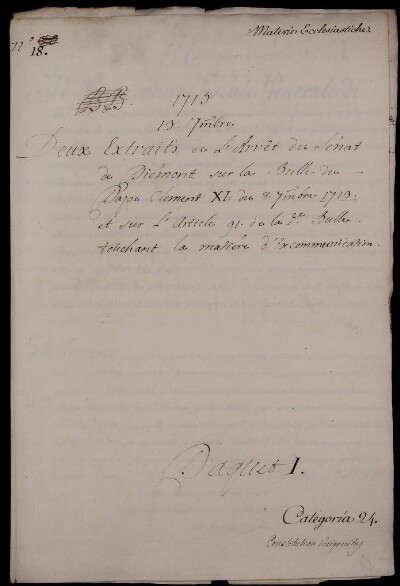 Materie Ecclesiastiche
N.° 18.
1713
13. 7mbre
Deux Extraits de L'Arrêt du Sénat
de Piémont sur la Bulle du
Pape Clement XI. du 8. 7mbre 1713.
et sur L'Article 91. de la d.e Bulle
touchant la matiere d'Excommunication.
Paquet I.
Categoria 24.
Constitution Unigenitus